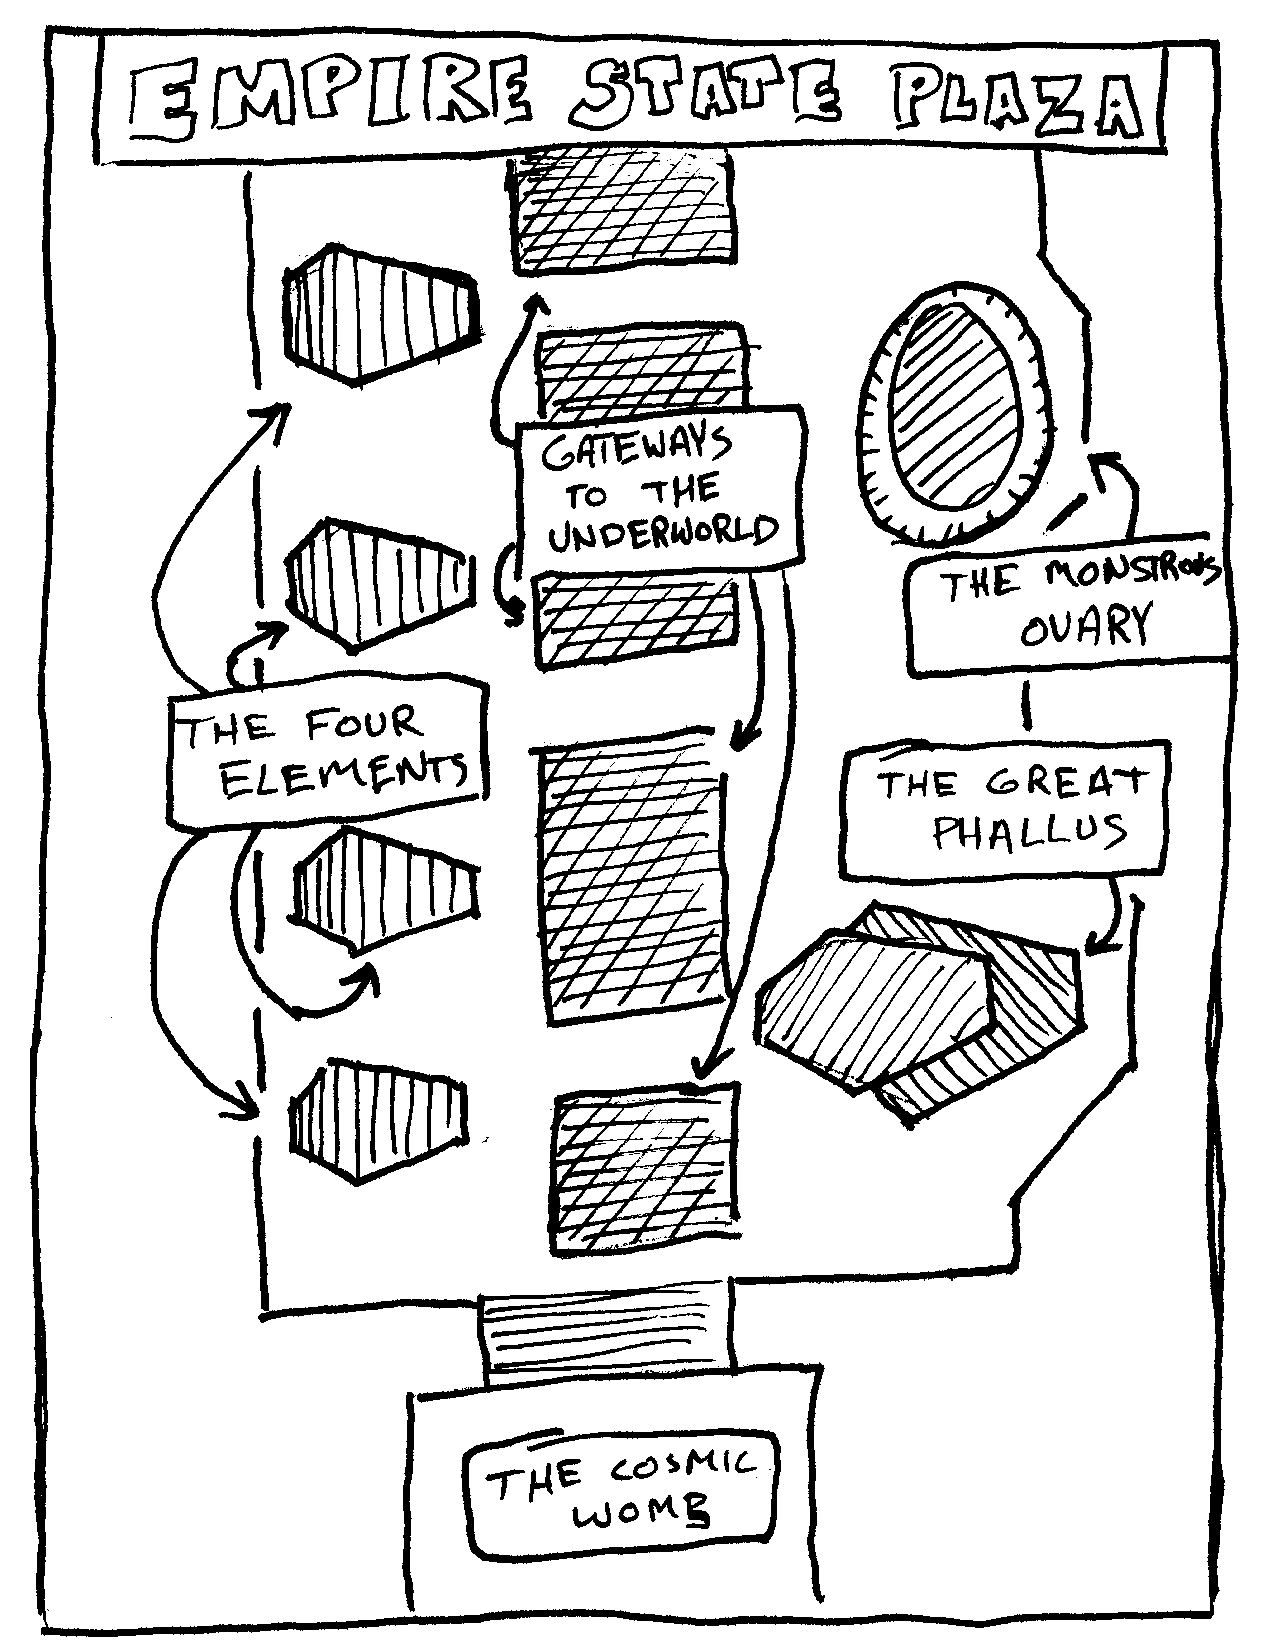 EMPIRE STATE PLAZA
GATEWAYS
TO THE
UNDERWORLD
THE MONSTROUS
OVARY
THE FOUR
ELEMENTS
THE GREAT
PHALLUS
THE COSMIC
WOMB